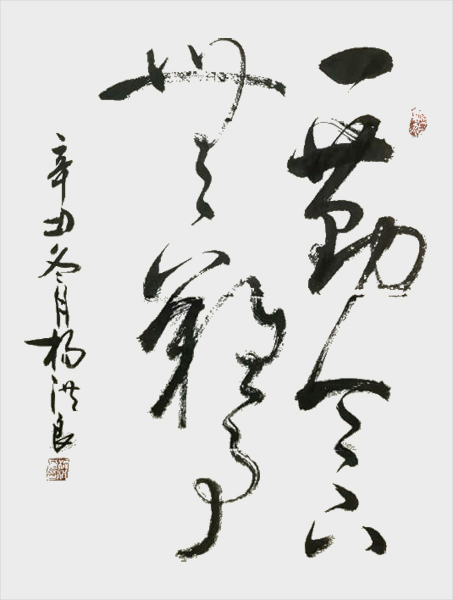 一勤天下
無難事
辛丑冬月杨洪良